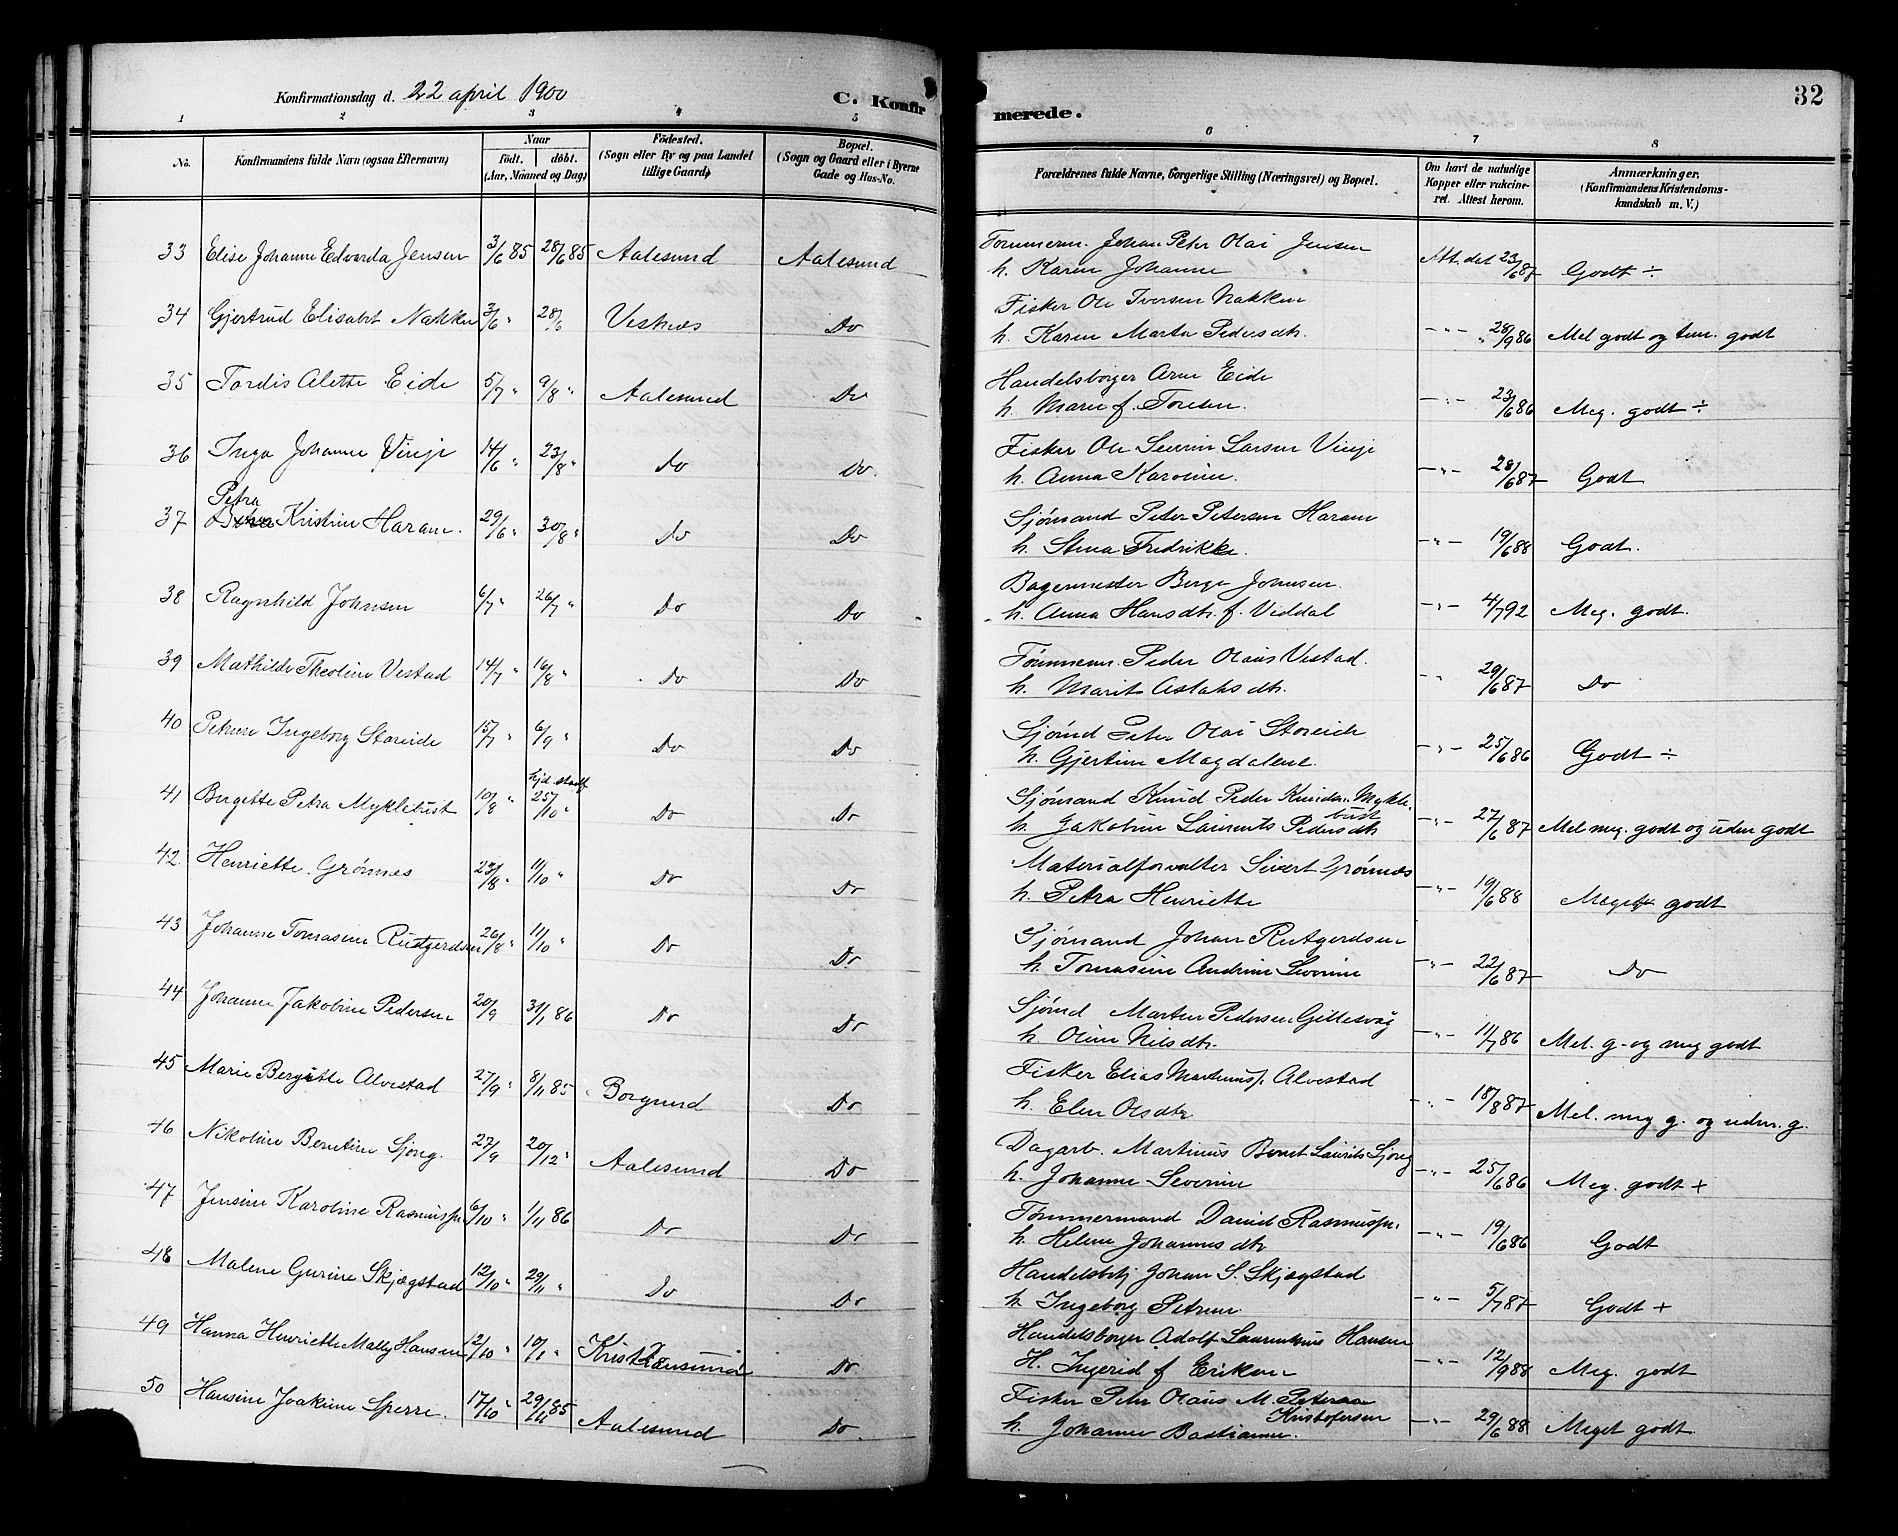 Konfirmationsdag d. 22 april 1900
C. Konfir
merede.
32
1 2 3 4 5 6 7 8
No.
Konfirmandens fulde Navn (ogsaa Efternavn)
Naar
født. døbt.
(Aar, Maaned og Dag)
Fødested.
(Sogn eller By og paa Landet
tillige Gaard)
Bopæl.
(Sogn og Gaard eller i Byerne
Gade og Hus-No.
Forældrenes fulde Navne, borgerlige Stilling (Næringsvei) og Bopæl.
Om havt de naturlige
Kopper eller vakcine-
ret. Attest herom.
Anmærkninger,
(Konfirmandens Kristendoms-
kundskab m. V.)
33 Elise Johanne Edvarda Jensen 3/6 85 28/6 85 Aalesund Aalesund Tømmerm. Johan Peter Olai Jensen
h. Karen Johanne Att. dat 23/6 87 Godt ÷
34 Gjertrud Elisabet Nakken 3/6 " 28/6 Vestnes Do Fisker Ole Iversen Nakken
h. Karen Marta Pedersdtr. -"- 28/9 86 Mel godt og tem. godt
35 Tordis Alette Eide 5/7 " 9/8 " Aalesund Do Handelsborger Arne Eide
h. Marie f. Toresen. -"- 23/6 86 Meg. godt ÷
36 Inga Johanne Vinje 14/6 " 23/8 " Do Do. Fisker Ole Severin Larsen Vinje
h. Anna Karoline. -"- 28/6 87 Godt
Petra
37 Kristine Haram. 29/6 " 30/8 " Do Do Sjømand Peter Petersen Haram
h. Stina Fredrikke. -"- 19/6 88 Godt.
38 Ragnhild Johnsen 6/7 " 26/7 " Do Do Bagermester Berge Johnsen.
h. Anna Hansdtr. f. Viddal -"- 4/7 92 Meg. godt.
39 Mathilde Theoline Vestad 14/7 " 16/8 " Do Do Tømmerm. Peder Olaus Vestad.
h. Marit Aslaksdtr. " 29/6 87 Do
40 Petrine Ingeborg Storeide 15/7 " 6/9 " Do Do Sjømd Peter Olai Storeide
h. Gjertine Magdalene. -"- 25/6 86 Godt ÷
hjd. stadf
41 Birgitte Petra Myklebust 10/8 " 25/10 " Do Do Sjømand Knud Peder Knudsen Mykle-
bust
h. Jakobine Laurents Pedersdtr -"- 27/6 87 Mel meg. godt og uden godt
42. Henriette Grønnes 23/8 " 11/10 " Do Do Materialforvalter Sivert Grønnes
h. Petra Henriette -"- 19/6 88 Meget godt
43 Johanne Tomasine Rutgerdsen 26/8 " 11/10 " Do Do Sjømand Johan Rutgerdsen
h. Tomasine Andrine Severine -"- 22/6 87 Do
44 Johanne Jakobine Pedersen 20/9 31/1 86 Do Do Sjømd Martin Pedersen Gillesvåg
h. Oline Nilsdtr. -"- 11/7 86 Mel. g. og meg godt
45 Marie Bergitte Alvestad 27/9 " 8/11 85 Borgund Do Fisker Elias Martinus Alvestad
h. Elen Olsdtr -"- 18/8 87 Mel. meg g. og uden. g.
46 Nikoline Berntine Sjong. 27/9 20/12 " Aalesund Do Dagarb. Martinus Bernt Laurits Sjong
h. Johanne Severine -"- 25/6 86 Meg. godt +
47 Jensine Karoline Rasmussen 6/10 " 1/11 86 Do Do Tømmermand David Rasmussen.
h. Helene Johannesdtr -"- 19/6 86 Godt
48 Malene Gurine Skjegstad 12/10 " 29/11 " Do Do Handelsbetj Johan S. Skjegstad
h. Ingeborg Petrine. -"- 5/7 87 Godt +
49 Hanna Henriette Mally Hansen 12/10 " 10/1 " Kristiansund Do. Handelsborger Adolf Laurentius Hansen
H. Ingerid f Eriksen -"- 12/9 88 Meg. godt
50 Hansine Joakime Sperre. 17/10 " 29/11 85 Aalesund Do. Fisker Peter Olaus M. Petersen
Kristofersen
h. Johanne Bastianne. -"- 29/6 88 Meget godt